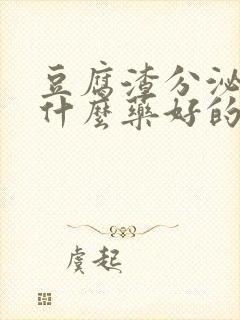 豆腐渣分泌
什麼藥好的
虞起